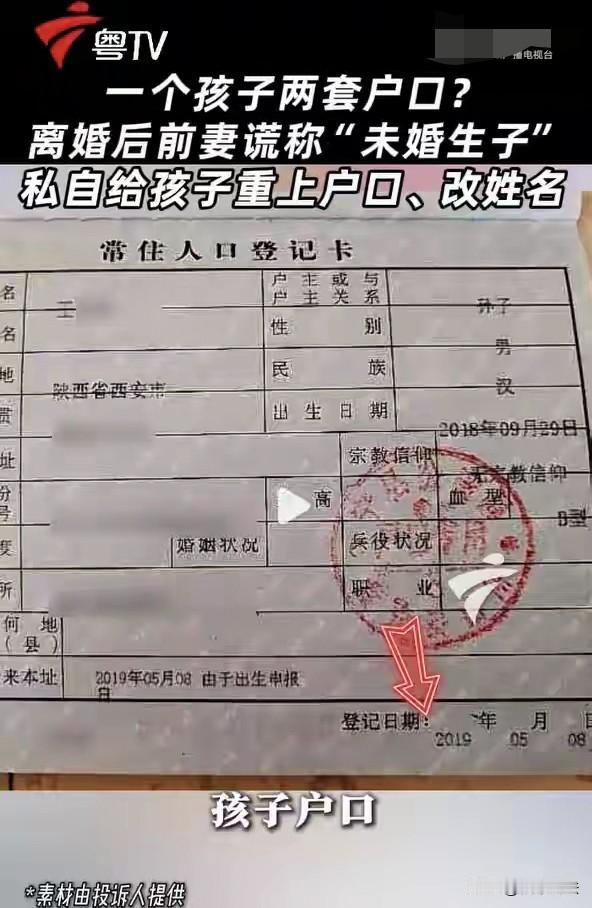 粤TV
播电视台
一个孩子两套户口？
离婚后前妻谎称“未婚生子”
私自给孩子重上户口、改姓名
常住人口登记卡
名 王 户主或与户主关系 孙子
名 性别 男
地 陕西省西安市 民族 汉
贯 出生日期 2018年09月29日
址 宗教信仰 无宗教信仰
份号 高 血型 B型
度 婚姻状况 兵役状况
所 职业
何地
(县)
来本址 2019年05月08日 由于出生申报
登记日期： 年 月 日
2019 05 08
孩子户口
*素材由投诉人提供